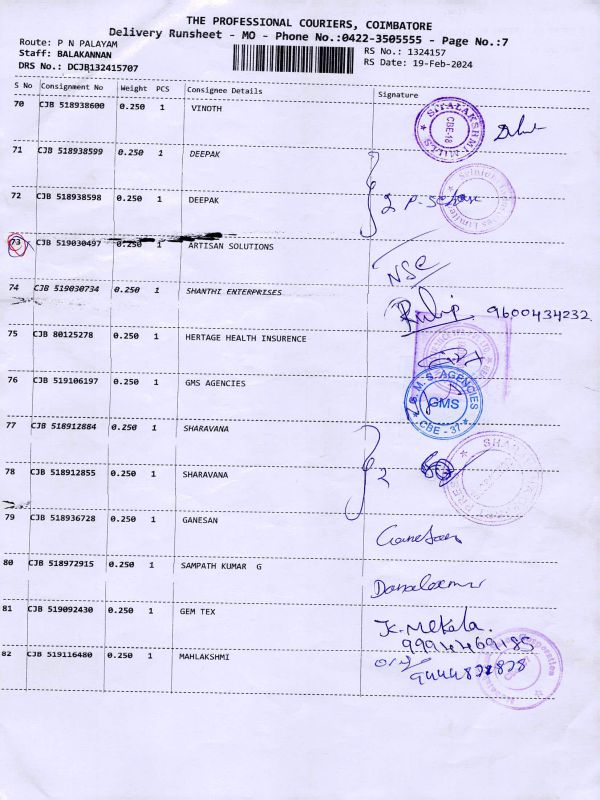 THE PROFESSIONAL COURIERS, COIMBATORE
Delivery Runsheet - MO - Phone No.:0422-3505555 - Page No.:7
Route: P N PALAYAM
RS No.: 1324157
Staff: BALAKANNAN
RS Date: 19-Feb-2024
DRS No.: DCJB132415707
S No Consignment No Weight PCS Consignee Details Signature
70 CJB 518938600 0.250 1 VINOTH
SITALAKSHMI MILLS CBE-18
71 CJB 518938599 0.250 1 DEEPAK
72 CJB 518938598 0.250 1 DEEPAK
2
73 CJB 519030497 0.250 1 ARTISAN SOLUTIONS
NSC
74 CJB 519030734 0.250 1 SHANTHI ENTERPRISES
9600434232
75 CJB 80125278 0.250 1 HERTAGE HEALTH INSURENCE
76 CJB 519106197 0.250 1 GMS AGENCIES
G. M. S. AGENCIES GMS CBE - 37
77 CJB 518912884 0.250 1 SHARAVANA
78 CJB 518912855 0.250 1 SHARAVANA
2
79 CJB 518936728 0.250 1 GANESAN
Ganesan
80 CJB 518972915 0.250 1 SAMPATH KUMAR G
Danalaxmi
81 CJB 519092430 0.250 1 GEM TEX
K. Mekala.
9994469185
82 CJB 519116480 0.250 1 MAHLAKSHMI